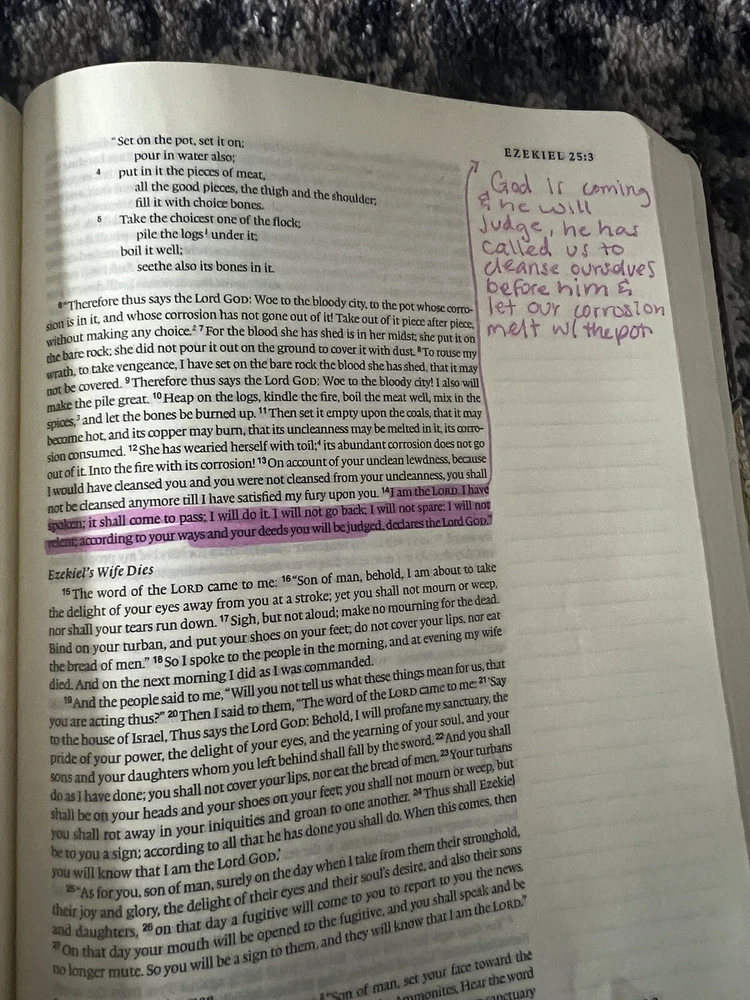 EZEKIEL 25:3
"Set on the pot, set it on;
pour in water also;
4 put in it the pieces of meat,
all the good pieces, the thigh and the shoulder;
fill it with choice bones.
5 Take the choicest one of the flock;
pile the logs¹ under it;
boil it well;
seethe also its bones in it.
6 "Therefore thus says the Lord GOD: Woe to the bloody city, to the pot whose corro-
sion is in it, and whose corrosion has not gone out of it! Take out of it piece after piece,
without making any choice.² 7 For the blood she has shed is in her midst; she put it on
the bare rock; she did not pour it out on the ground to cover it with dust. 8 To rouse my
wrath, to take vengeance, I have set on the bare rock the blood she has shed, that it may
not be covered. 9 Therefore thus says the Lord GOD: Woe to the bloody city! I also will
make the pile great. 10 Heap on the logs, kindle the fire, boil the meat well, mix in the
spices,³ and let the bones be burned up. 11 Then set it empty upon the coals, that it may
become hot, and its copper may burn, that its uncleanness may be melted in it, its corro-
sion consumed. 12 She has wearied herself with toil;⁴ its abundant corrosion does not go
out of it. Into the fire with its corrosion! 13 On account of your unclean lewdness, because
I would have cleansed you and you were not cleansed from your uncleanness, you shall
not be cleansed anymore till I have satisfied my fury upon you. 14 I am the LORD. I have
spoken; it shall come to pass; I will do it. I will not go back; I will not spare; I will not
relent; according to your ways and your deeds you will be judged, declares the Lord GOD."
Ezekiel's Wife Dies
15 The word of the LORD came to me: 16 "Son of man, behold, I am about to take
the delight of your eyes away from you at a stroke; yet you shall not mourn or weep,
nor shall your tears run down. 17 Sigh, but not aloud; make no mourning for the dead.
Bind on your turban, and put your shoes on your feet; do not cover your lips, nor eat
the bread of men." 18 So I spoke to the people in the morning, and at evening my wife
died. And on the next morning I did as I was commanded.
19 And the people said to me, "Will you not tell us what these things mean for us, that
you are acting thus?" 20 Then I said to them, "The word of the LORD came to me: 21 'Say
to the house of Israel, Thus says the Lord GOD: Behold, I will profane my sanctuary, the
pride of your power, the delight of your eyes, and the yearning of your soul, and your
sons and your daughters whom you left behind shall fall by the sword. 22 And you shall
do as I have done; you shall not cover your lips, nor eat the bread of men. 23 Your turbans
shall be on your heads and your shoes on your feet; you shall not mourn or weep, but
you shall rot away in your iniquities and groan to one another. 24 Thus shall Ezekiel
be to you a sign; according to all that he has done you shall do. When this comes, then
you will know that I am the Lord GOD.'
25 "As for you, son of man, surely on the day when I take from them their stronghold,
their joy and glory, the delight of their eyes and their soul's desire, and also their sons
and daughters, 26 on that day a fugitive will come to you to report to you the news.
27 On that day your mouth will be opened to the fugitive, and you shall speak and be
no longer mute. So you will be a sign to them, and they will know that I am the LORD."
"Son of man, set your face toward the
Ammonites, Hear the word
God is coming
& he will
judge, he has
called us to
cleanse ourselves
before him &
let our corrosion
melt w/ the pot